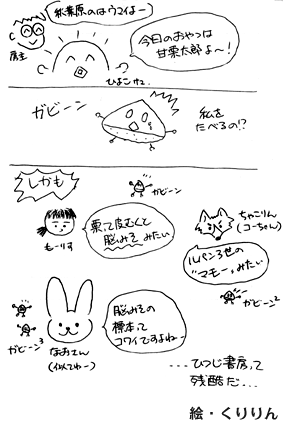 秋葉原のはウマイよー
房主
今日のおやつは
甘栗太郎よ〜!
ひよこけん
ガビーン
私を
たべるの!?
しかも
ガビーン
もーりす
栗って皮むくて
脳みそみたい
ちゃこりん
(コーちゃん)
ルパン3世の
"マモー"みたい
ガビーン2
ガビーン3
なおさん
(似てねー)
脳みその
標本って
コワイですよねー
...ひつじ書房って
残酷だ...
絵・くりりん